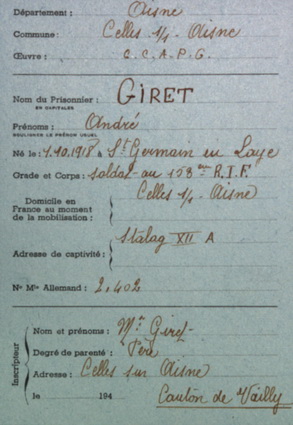 Département : Aisne
Commune : Celles s/s Aisne
Œuvre : C.C.A.P.G.
Nom du Prisonnier : GIRET
EN CAPITALES
Prénoms : André
SOULIGNER LE PRÉNOM USUEL
Né le : 7.10.1918 à St Germain en Laye
Grade et Corps : soldat au 158ème R.I.F.
Domicile en
France au moment
de la mobilisation :
Celles s/s Aisne
Adresse de captivité :
Stalag XII A
No Mle Allemand : 2.402
Inscripteur
Nom et prénoms : Mr Giret
Degré de parenté : Père
Adresse : Celles sur Aisne
le 194
Canton de Vailly